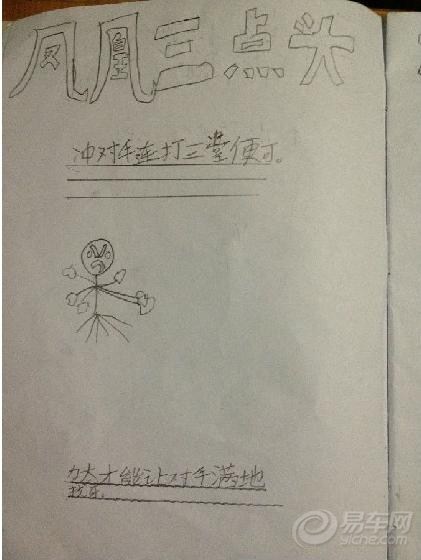 凤凰三点头
冲对手连打三掌便可。
力大才能让对手满地
找牙。
易车网
yiche.com